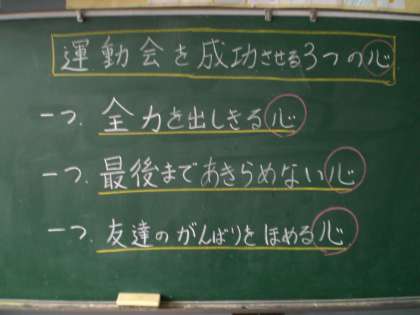 運動会を成功させる3つの心
一つ.全力を出しきる心
一つ.最後まであきらめない心
一つ.友達のがんばりをほめる心